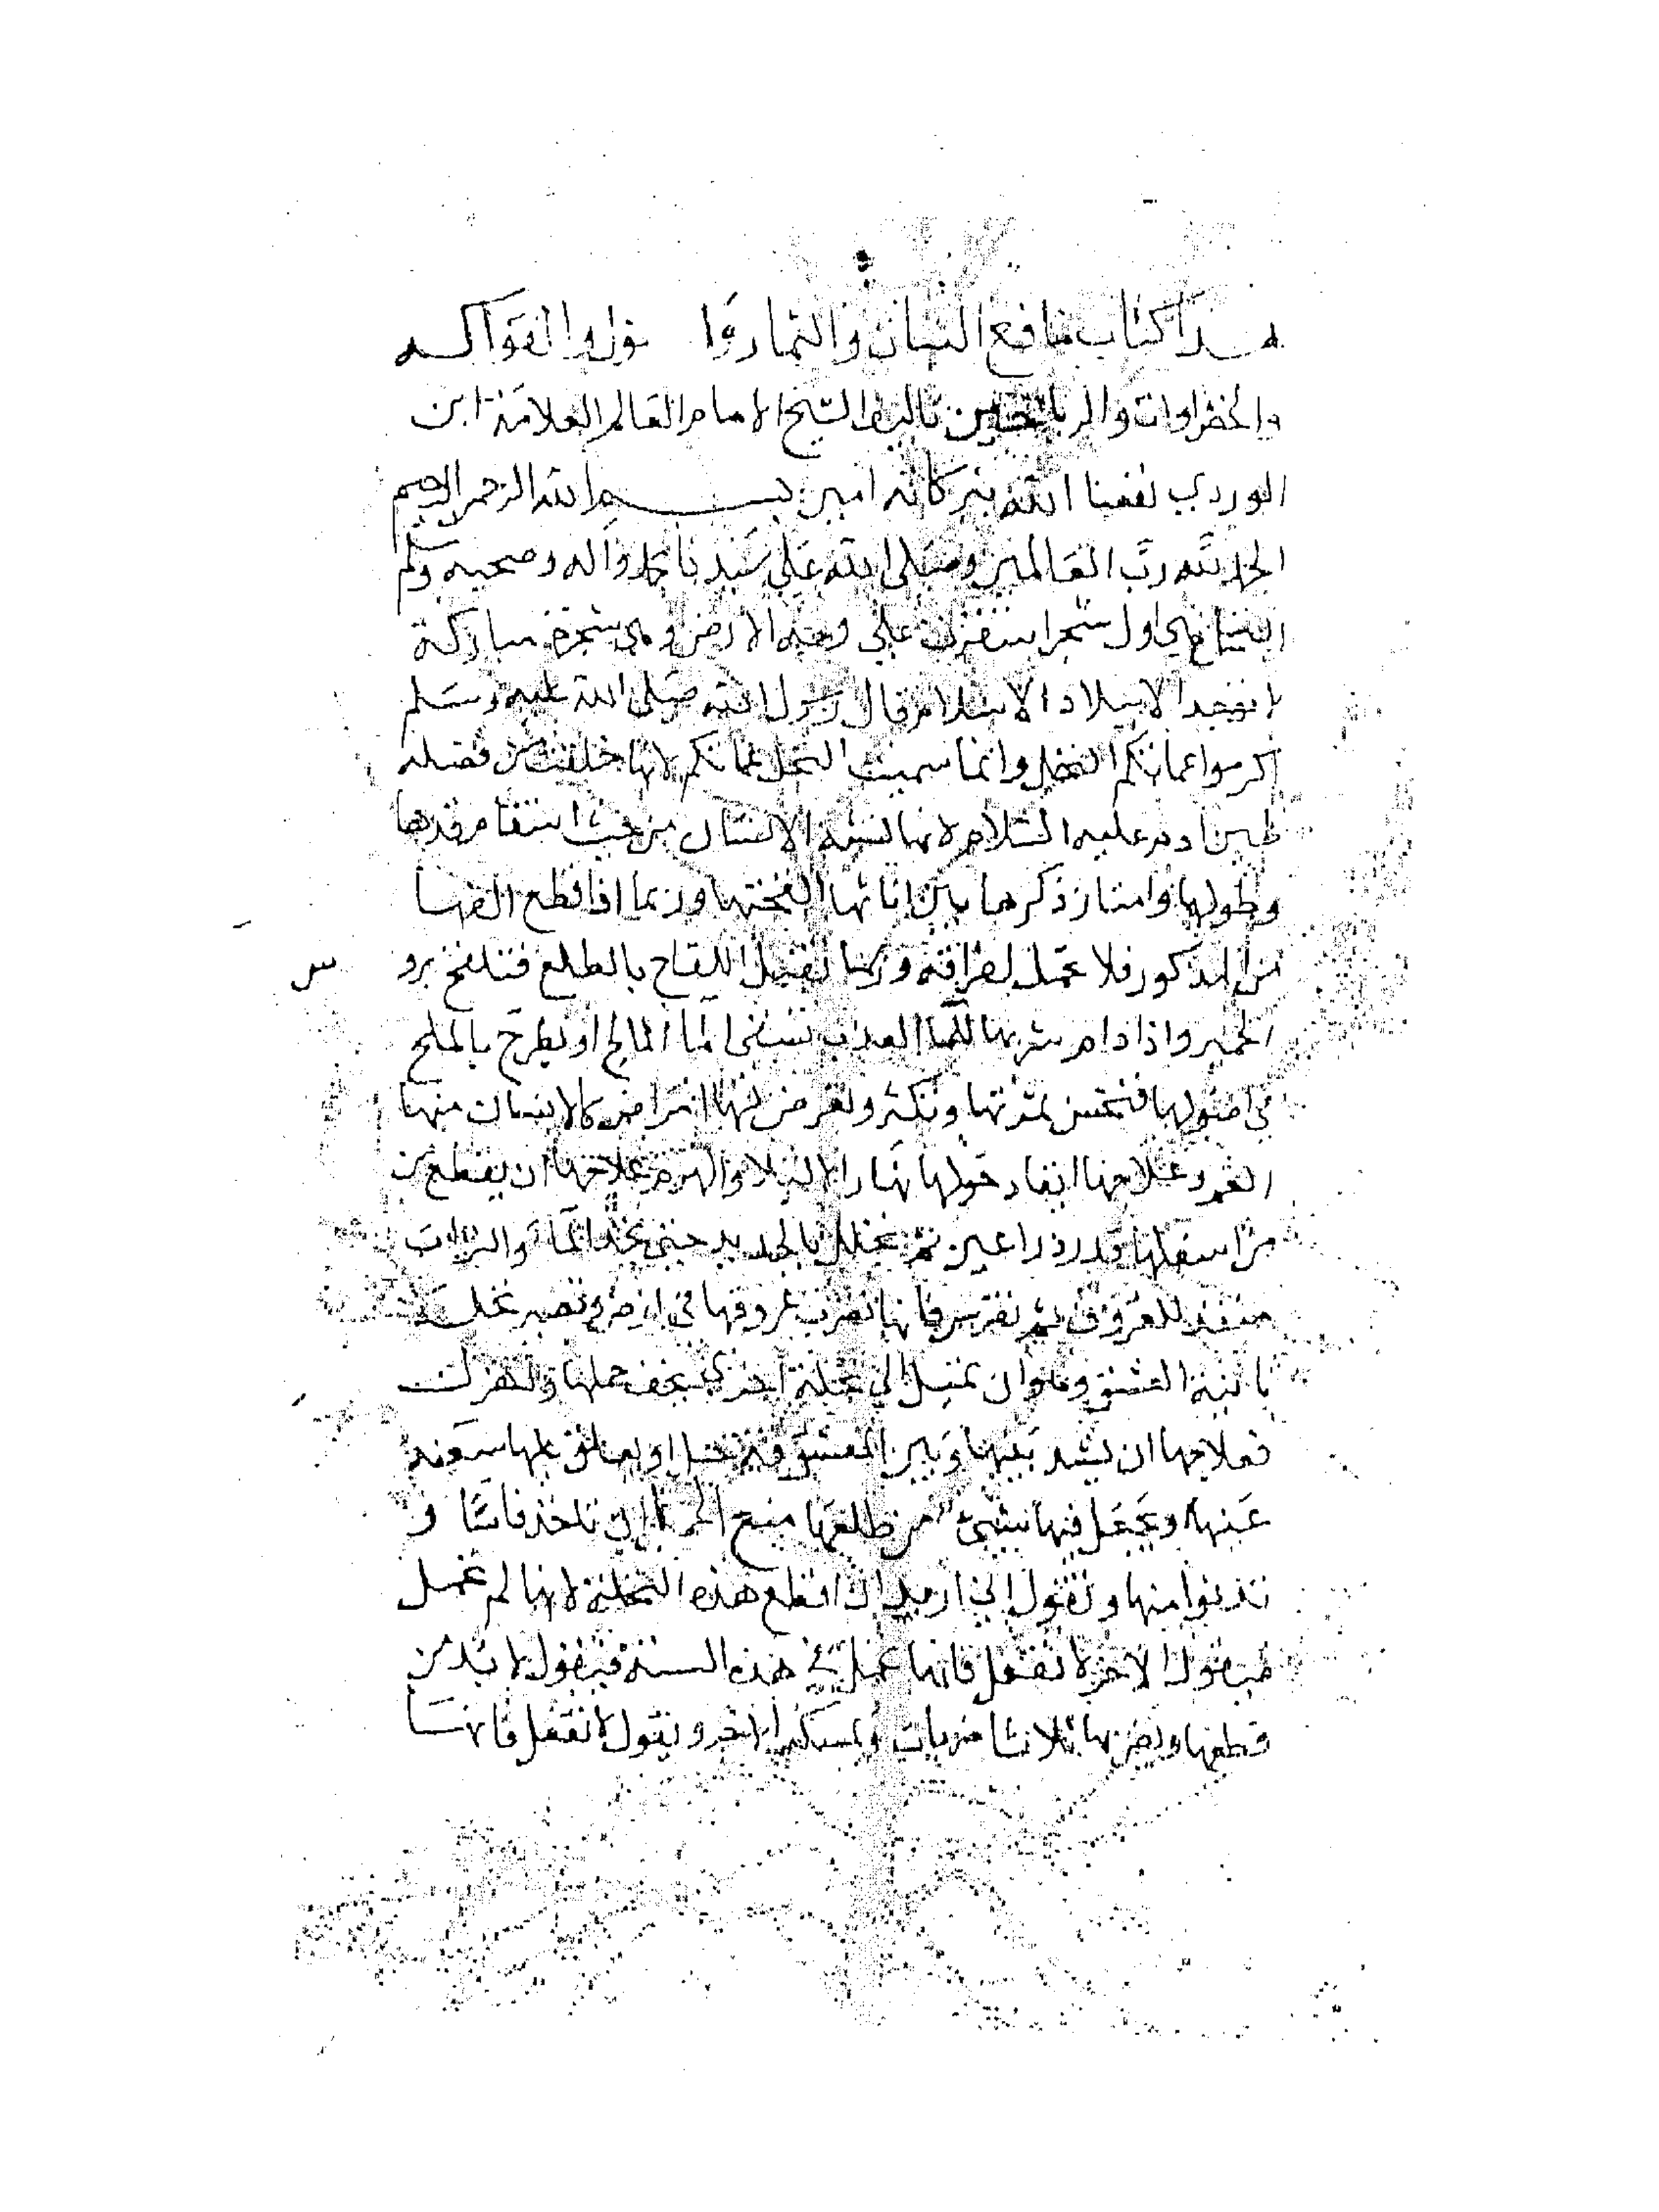 هذا كتاب منافع النبات والثمار والبقول والفواكه
والخضراوات والرياحين تاليف الشيخ الامام العالم العلامة ابن
الوردي نفعنا الله ببركاته امين بسم الله الرحمن الرحيم
الحمد لله رب العالمين وصلى الله على سيدنا محمد واله وصحبه وسلم
اول شجر استقرت على وجه الارض وهي شجرة مباركة
الاسلام قال رسول الله صلى الله عليه وسلم
اكرموا عماتكم النخل وانما سميت النخل عماتكم لانها خلقت من فضلة
طين ادم عليه السلام لانها تشبه الانسان من حيث استقامة قدها
وطولها وامتياز ذكرها من اناثها وربما اذا قطع الفها
من الذكور فلا تحمل لفراقه وربما اللقاح بالطلع فتلقح برو
واذا دام شربها للماء العذب تسقى الما المالح او يطرح بالملح
في اصولها فتحسن ثمرتها وتكثر ويعرض لها امراض كالانسان منها
الغم وعلاجها حولها نارا والهرم علاجها ان يقطع من
من اسفلها قدر ذراعين ثم تخلل بالحديد حتى الماء والتراب
منفذ للعروق ثم تغرس فانها تضرب عروقها في ارض وتصير نخلة
العشق وهو ان تميل الى نخلة اخرى يخف حملها وتهزل
فعلاجها ان يشد بينها وبين المعشوقة بحبل او يعلق عليها سعفة
عنها ويجعل فيها شيئ من طلعها منع الحمل ان تاخذ فاسا و
تدنوا منها وتقول اني اريد ان اقطع هذه النخلة لانها لم تحمل
فيقول الاخر لا تفعل فانها تحمل في هذه السنة فيقول لا بد من
قطعها ويضربها ثلاثا ضربات ويمسكه الاخر ويقول لا تفعل فانها